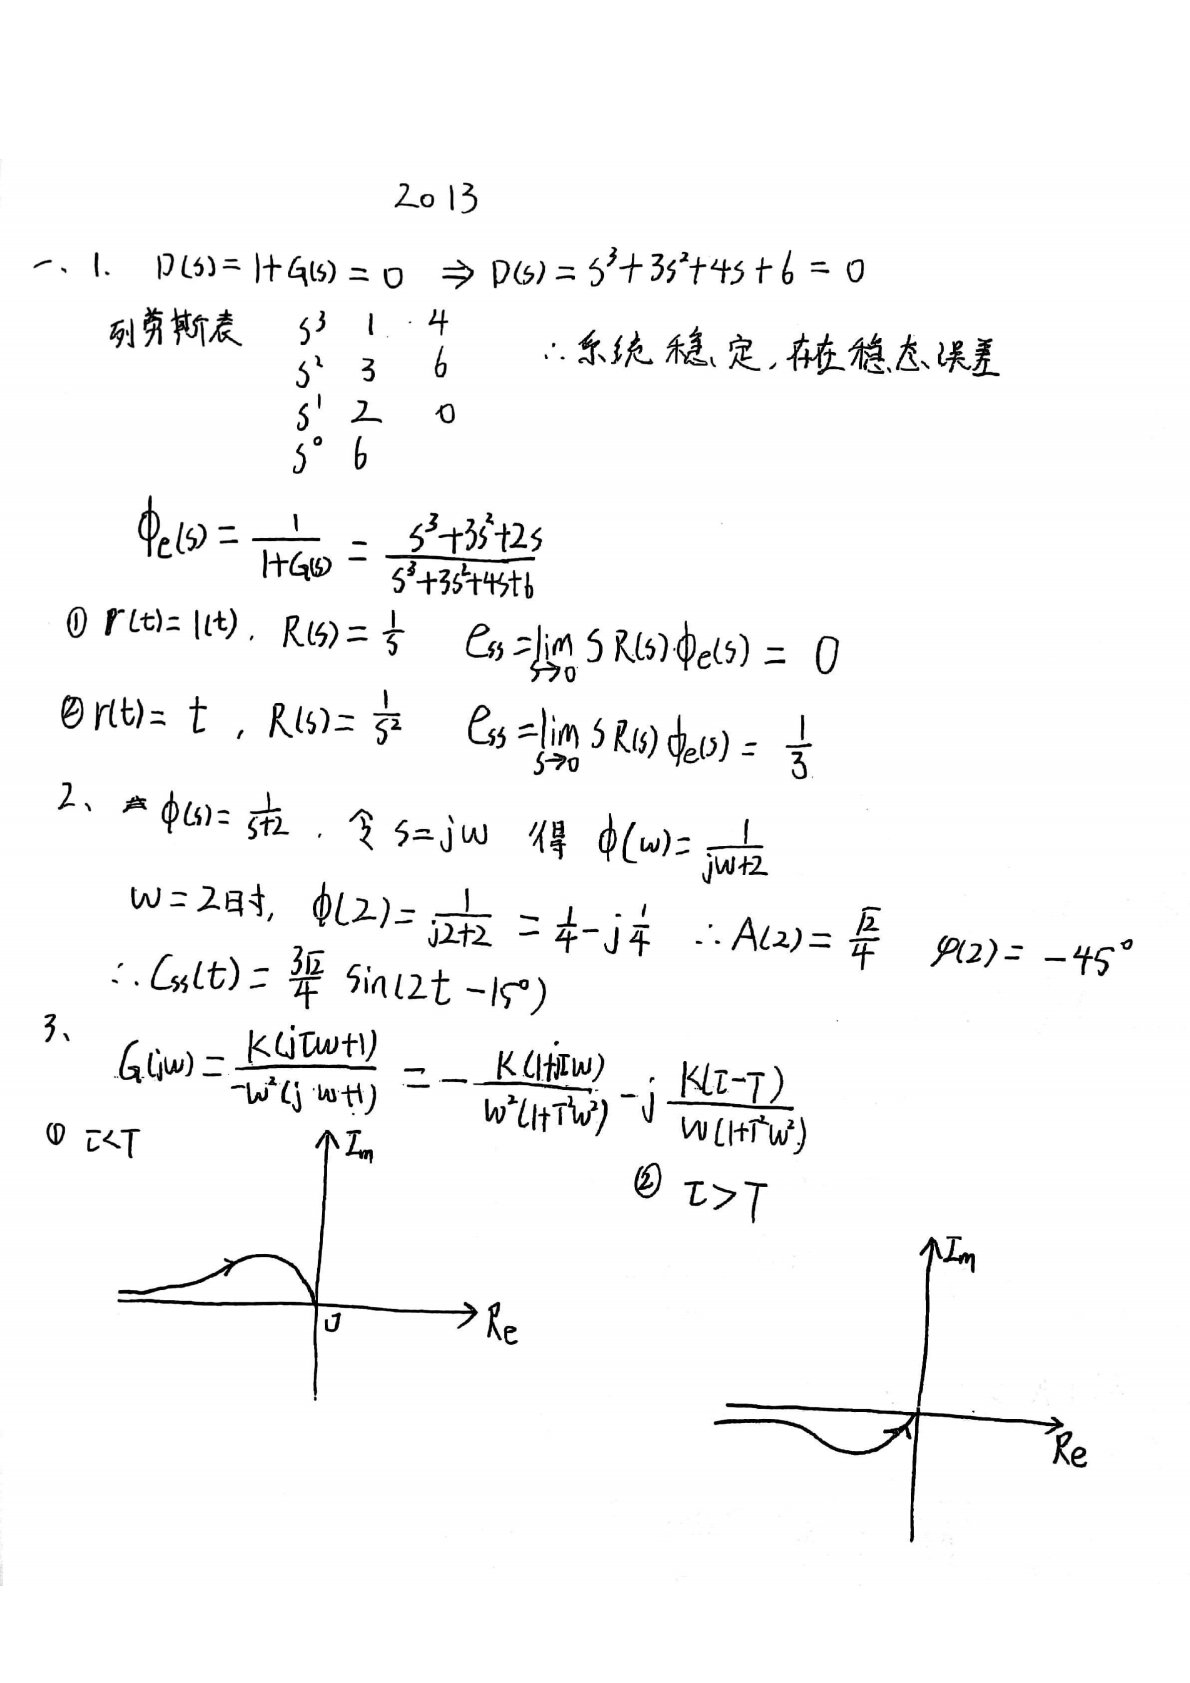 2013
一、1. D(s)=1+G(s)=0 ⇒ D(s)=s³+3s²+4s+6=0
列劳斯表 s³ 1 4
s² 3 6 ∴系统稳定,存在稳态误差
s¹ 2 0
s⁰ 6
ϕe(s)=1/(1+G(s))=(s³+3s²+2s)/(s³+3s²+4s+6)
① r(t)=1(t), R(s)=1/s ess=lim s→0 SR(s)·ϕe(s)=0
② r(t)=t, R(s)=1/s² ess=lim s→0 SR(s)ϕe(s)=1/3
2、 ϕ(s)=1/(s+2). 令s=jw 得 ϕ(w)=1/(jw+2)
w=2时, ϕ(2)=1/(j2+2)=1/4-j1/4 ∴A(2)=√2/4 φ(2)=-45°
∴Css(t)=3√2/4 sin(2t-15°)
3、
G(jw)=K(jτw+1)/(-w²(j w+1))=-K(1+jτw)/(w²(1+T²w²))-jK(τ-T)/(w(1+T²w²))
① τ<T Im
② τ>T
Im
0 Re
Re